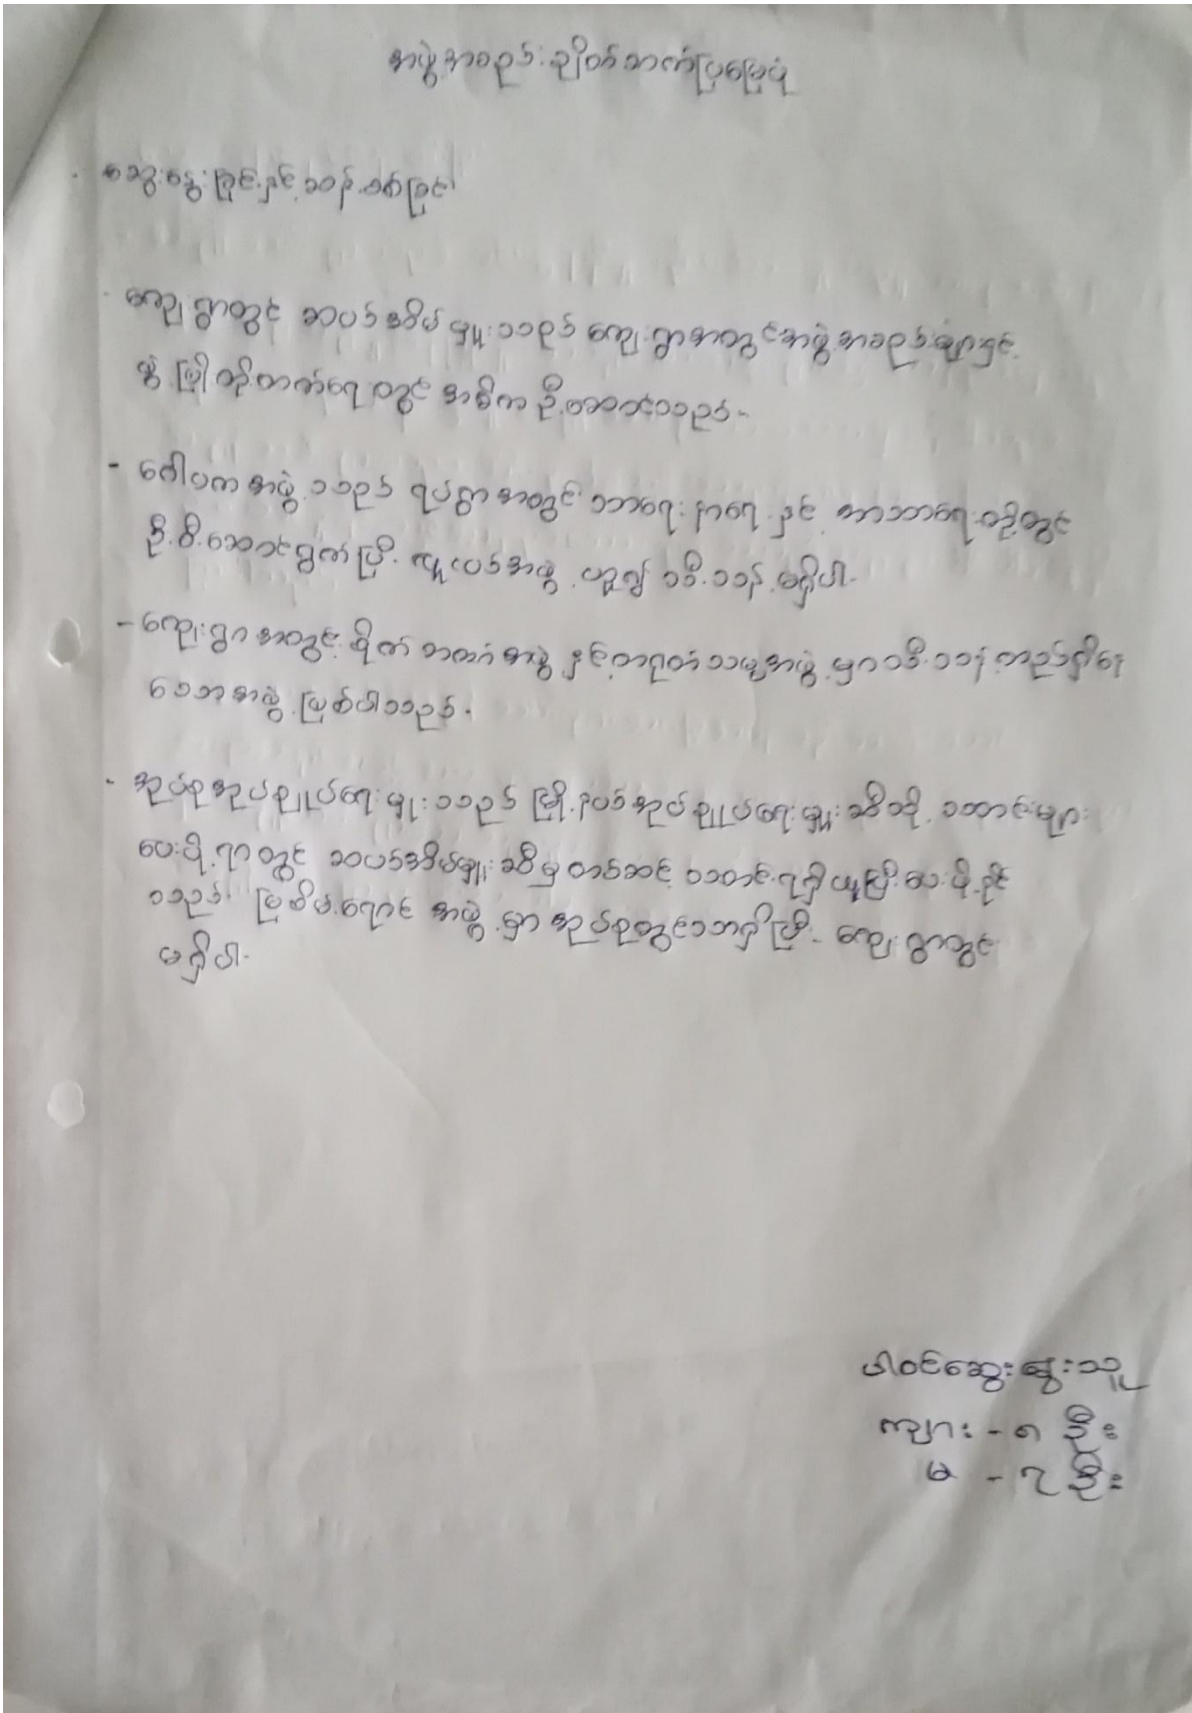 အဖွဲ့အစည်းချိတ်ဆက်ပြမြေပုံ
ဆွေးနွေးခြင်းနှင့် ခြင်း
- ကျေးရွာတွင် ဆယ်အိမ်မှူးသည် ကျေးရွာအတွင်းအဖွဲ့အစည်းများနှင့်
ဖွံ့ဖြိုးတိုးတက်ရေးတွင် အဓိက ဦးဆောင်သည်။
- ဂေါပကအဖွဲ့သည် ရပ်ရွာအတွင်း သာရေးနာရေးနှင့် ဘာသာရေးတို့တွင်
ဦးစီးဆောင်ရွက်ပြီး လူငယ်အဖွဲ့ ဟူ၍ သီးသန့်မရှိပါ။
- ကျေးရွာအတွင်း စိုက် အဖွဲ့နှင့် အဖွဲ့မှာ သီးသန့်တည်ရှိနေ
သော အဖွဲ့ဖြစ်ပါသည်။
- အုပ်စုအုပ်ချုပ်ရေးမှူးသည် မြို့နယ်အုပ်ချုပ်ရေးမှူးဆီသို့ သတင်းများ
ပေးပို့ရာတွင် ဆယ်အိမ်မှူးဆီမှ တစ်ဆင့် သတင်းရရှိယူပြီး ပေးပို့နိုင်
သည်။ အဖွဲ့မှာ အုပ်စုတွင်သာရှိပြီး ကျေးရွာတွင်
မရှိပါ။
ပါဝင်ဆွေးနွေးသူ
ကျား - ၈ ဦး
မ - ၇ ဦး